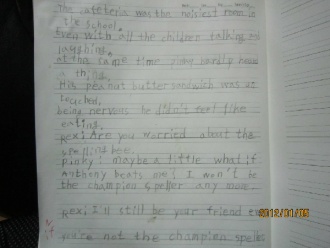 The cafeteria was the noisiest room in
the school.
Even with all the children talking and
laughing.
at the same time pinky hardly heard
a thing.
His peanut butter sandwich was un
touched,
being nervous he didn't feel like
eating.
Rex: Are you worried about the
spelling bee.
pinky: maybe a little what if
Anthony beats me? I won't be
the champion speller any more.
Rex: I'll still be your friend
if you're not the champion speller
2012/01/05